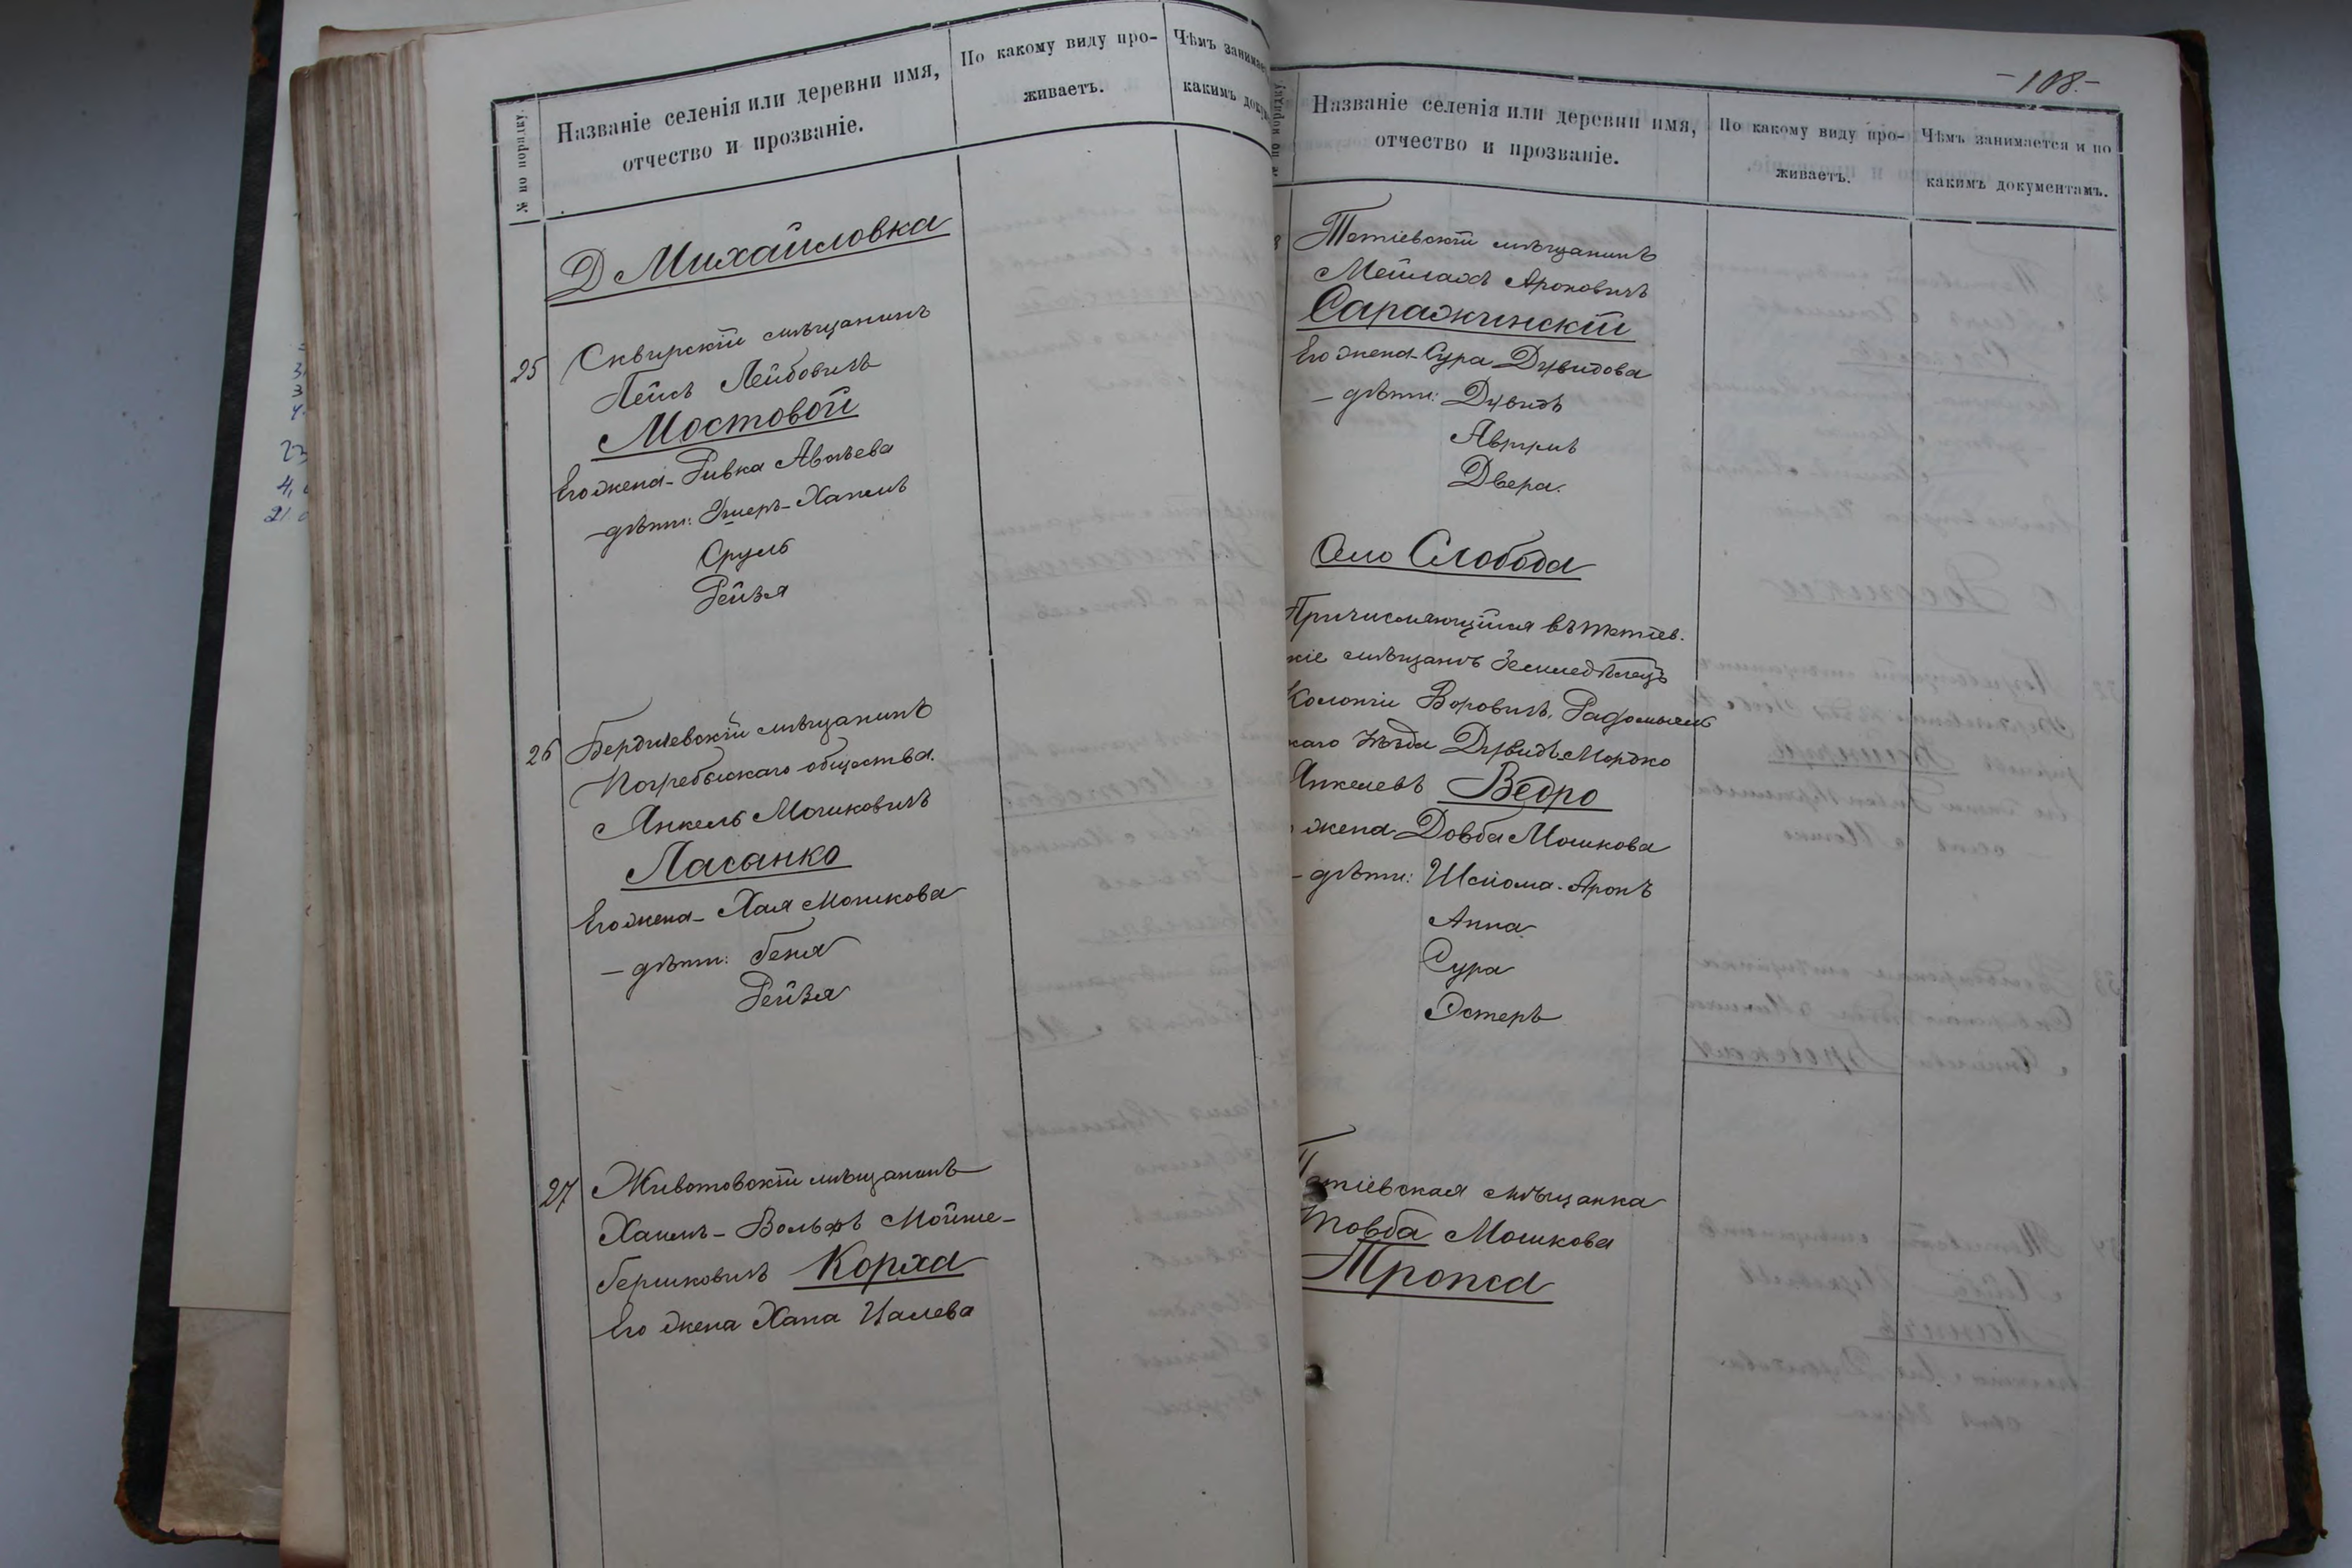 № по порядку
Названіе селенія или деревни имя,
отчество и прозваніе.
По какому виду про-
живаетъ.
Чѣмъ занимае
какимъ доку
Д Михайловка
25 Сквирскій мѣщанинъ
Лейбовичъ
Мостовой
Его жена - Ривка
- дѣти: Хаимъ
Сруль
Рейзя
26 Бердичевскій мѣщанинъ
Погребыскаго общества.
Янкель Мошковичъ
Ласанко
Его жена - Хая Мошкова
- дѣти: Геня
Рейзя
27 Животовскій мѣщанинъ
Хаимъ - Вольфъ Мойше-
Гершковичъ Корха
Его жена Хана
- 108. -
№ по порядку
Названіе селенія или деревни имя,
отчество и прозваніе.
По какому виду про-
живаетъ.
Чѣмъ занимается и по
какимъ документамъ.
8 Тетіевскій мѣщанинъ
Мейлахъ Ароновичъ
Саражинскій
Его жена - Сура Дувидова
- дѣти: Дувидъ
Аврумъ
Двера.
Село Слобода
Причисляющійся въ тетіев.
кіе мѣщанъ Земледѣлецъ
Колоніи Воровичъ, Радомысль
каго уѣзда Дувидъ Мордко
Янкелевъ Ведро
жена Довба Мошкова
- дѣти: Шлиома - Аронъ
Анна
Сура
Эстеръ
Тетіевская мѣщанка
Товба Мошкова